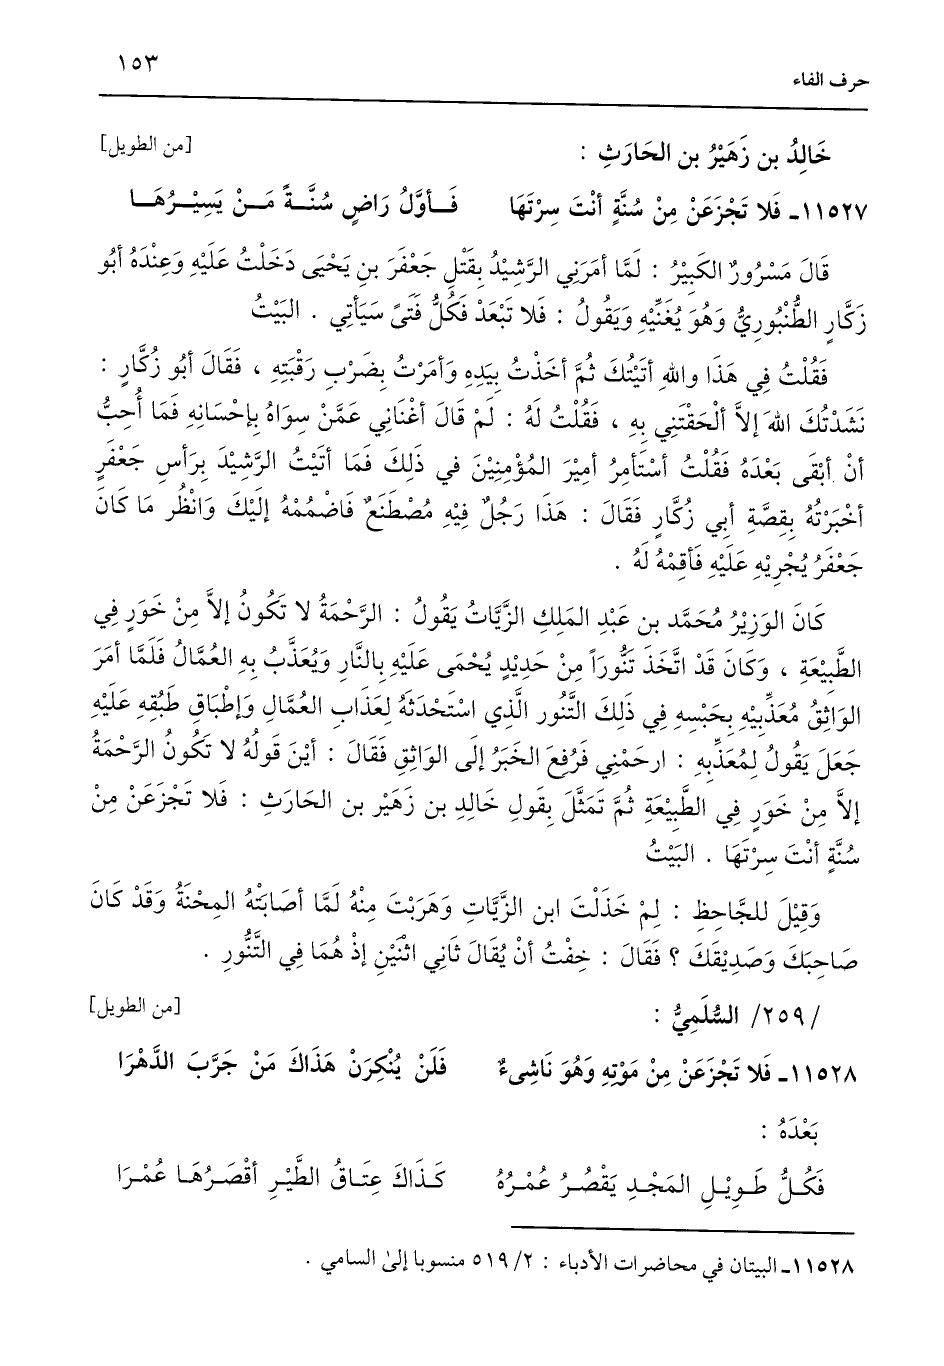 ١٥٣
حرف الفاء
خَالِدُ بن زَهَيْرُ بن الحَارَثِ : [من الطويل]
١١٥٢٧ـ فَلا تَجْزَعَنْ مِنْ سُنَّةٍ أنْتَ سِرْتَهَا فَـأوَّلُ رَاضٍ سُنَّـةً مَـنْ يَسِيْـرُهَـا
قَالَ مَسْرُورٌ الكَبِيْرُ : لَمَّا أمَرَنِي الرَّشِيْدُ بِقَتْلِ جَعْفَرَ بنِ يَحْيَى دَخَلْتُ عَلَيْهِ وَعِنْدَهُ أبُو
زَكَّارِ الطُّنْبُورِيُّ وَهُوَ يُغَنِّيْهِ وَيَقُولُ : فَلا تَبْعَدْ فَكُلُّ فَتَىً سَيَأتِي . البَيْتُ
فَقُلْتُ فِي هَذَا واللهِ أتَيْتُكَ ثُمَّ أخَذْتُ بِيَدِهِ وَأمَرْتُ بِضَرْبِ رَقْبَتِهِ ، فَقَالَ أبُو زُكَّارٍ :
نَشَدْتُكَ اللهَ إلاَّ ألْحَقْتَنِي بِهِ ، فَقُلْتُ لَهُ : لَمْ قَالَ أغْنَانِي عَمَّنْ سِوَاهُ بِإحْسَانِهِ فَمَا أُحِبُّ
أنْ أبْقَى بَعْدَهُ فَقُلْتُ أسْتَأمِرُ أمِيْرَ المُؤْمِنِيْنَ في ذَلِكَ فَمَا أتَيْتُ الرَّشِيْدَ بِرَأسِ جَعْفَرٍ
أخْبَرْتُهُ بِقِصَّةِ أبي زُكَّارٍ فَقَالَ : هَذَا رَجُلٌ فِيْهِ مُصْطَنَعٌ فَاضْمُمْهُ إلَيْكَ وَانْظُر مَا كَانَ
جَعْفَرُ يُجْرِيْهِ عَلَيْهِ فَأقِمْهُ لَهُ .
كَانَ الوَزِيْرُ مُحَمَّد بن عَبْدِ المَلِكِ الزَّيَّاتُ يَقُولُ : الرَّحْمَةُ لا تَكُونُ إلاَّ مِنْ خَوَرٍ فِي
الطَّبِيْعَةِ ، وَكَانَ قَدْ اتَّخَذَ تَنُّورَاً مِنْ حَدِيْدٍ يُحْمَى عَلَيْهِ بِالنَّارِ وَيُعَذَّبُ بِهِ العُمَّالُ فَلَمَّا أمَرَ
الوَاثِقُ مُعَذِّبِيْهِ بِحَبْسِهِ فِي ذَلِكَ التَّنُور الَّذِي اسْتَحْدَثَهُ لِعَذَابِ العُمَّالِ وَإطْبَاقِ طَبُقِهِ عَلَيْهِ
جَعَلَ يَقُولُ لِمُعَذِّبِهِ : ارحَمْنِي فَرُفِعَ الخَبَرُ إلَى الوَاثِقِ فَقَالَ : أيْنَ قَولُهُ لا تَكُونُ الرَّحْمَةُ
إلاَّ مِنْ خَوَرٍ فِي الطَّبِيْعَةِ ثُمَّ تَمَثَّلَ بِقَولِ خَالِدِ بن زَهَيْر بن الحَارَثِ : فَلا تَجْزَعَنْ مِنْ
سُنَّةٍ أنْتَ سِرْتَهَا . البَيْتُ
وَقِيْلَ للجَّاحِظِ : لِمْ خَذَلْتَ ابن الزَّيَّاتِ وَهَرَبْتَ مِنْهُ لَمَّا أصَابَتْهُ المِحْنَةُ وَقَدْ كَانَ
صَاحِبَكَ وَصَدِيْقَكَ ؟ فَقَالَ : خِفْتُ أنْ يُقَالَ ثَانِي اثْنَيْنِ إذْ هُمَا فِي التَّنُّورِ .
/٢٥٩/ السُّلَمِيُّ : [من الطويل]
١١٥٢٨ـ فَلا تَجْزَعَنْ مِنْ مَوْتِهِ وَهُوَ نَاشِىءٌ فَلَنْ يُنْكِرَنْ هَذَاكَ مَنْ جَرَّبَ الدَّهْرَا
بَعْدَهُ :
فَكُـلُّ طَـوِيْـلِ المَجْـدِ يَقْصُـرُ عُمْـرُهُ كَـذَاكَ عِتَـاقُ الطَّيْـرِ أقْصَـرُهَـا عُمْـرَا
١١٥٢٨ـ البيتان في محاضرات الأدباء : ٢/ ٥١٩ منسوبا إلىٰ السامي .